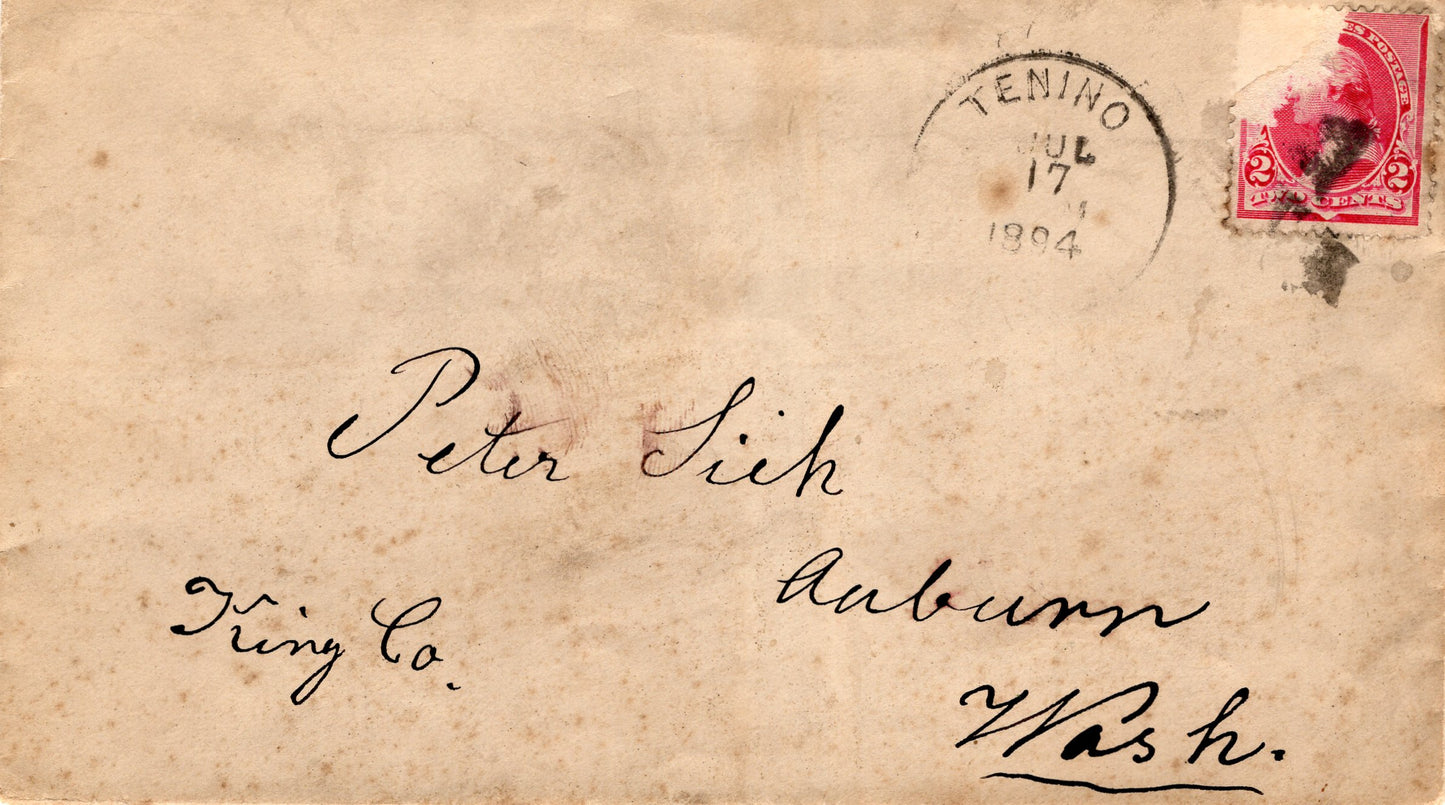 TENINO
JUL
17
M
1894
ES POSTAGE
2 2
TWO CENTS
Peter Sieh
Auburn
King Co.
Wash.